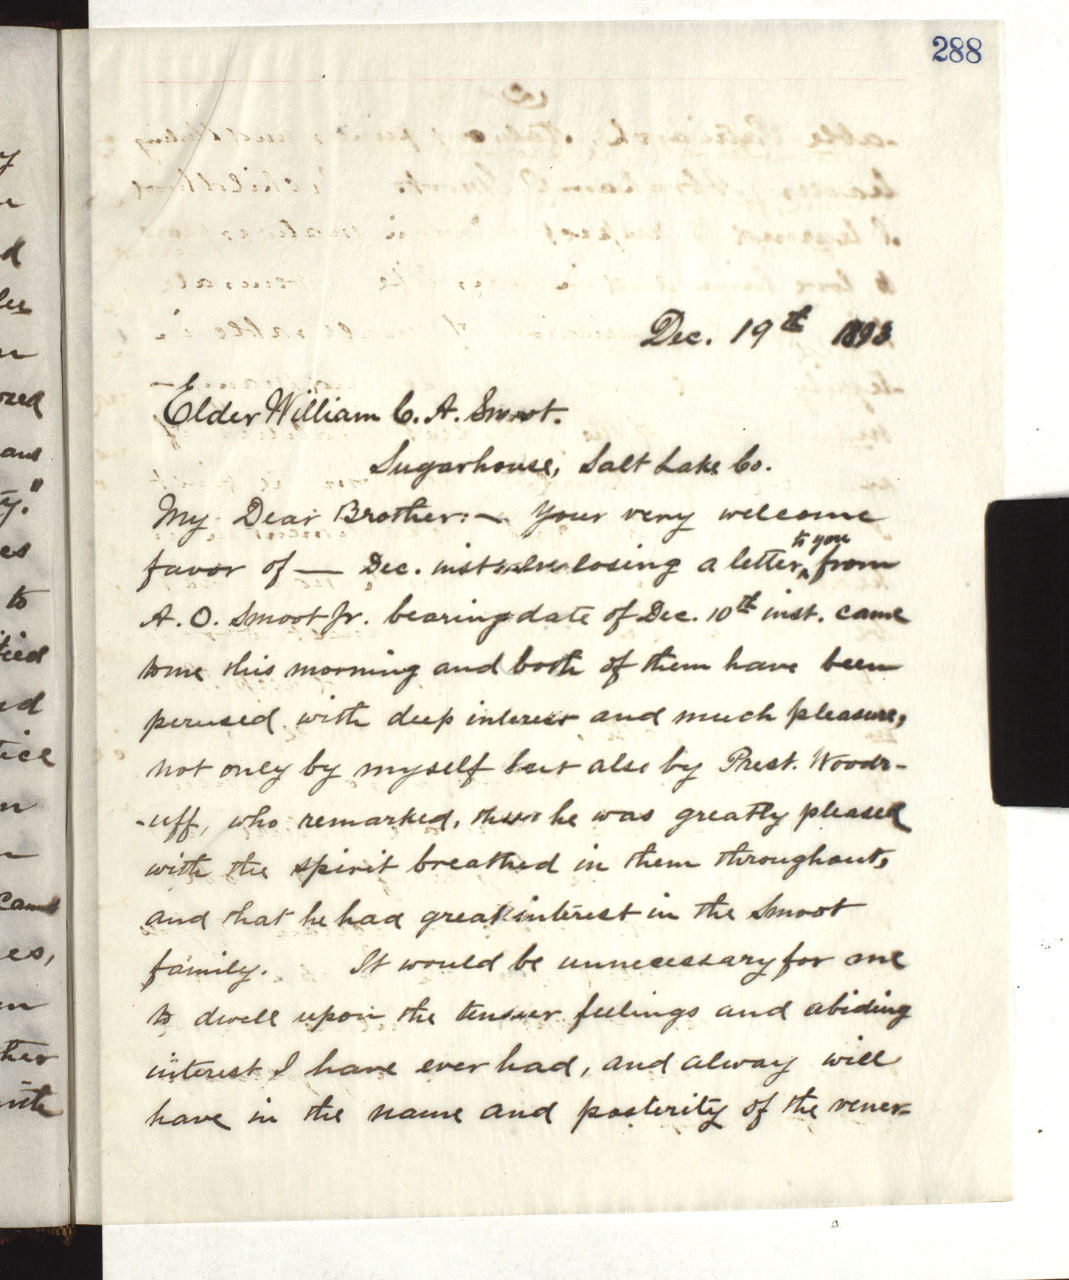 288
Dec. 19th 1893
Elder William C. A. Smoot.
Sugarhouse, Salt Lake Co.
My Dear Brother:— Your very welcome
favor of — Dec. inst. enclosing a letter to you from
A. O. Smoot Jr. bearing date of Dec. 10th inst. came
to me this morning and both of them have been
perused with deep interest and much pleasure,
not only by myself but also by Prest. Woodr-
-uff, who remarked, that he was greatly pleased
with the spirit breathed in them throughout,
and that he had great interest in the Smoot
family. It would be unnecessary for me
to dwell upon the tender feelings and abiding
interest I have ever had, and alway will
have in the name and posterity of the vener-